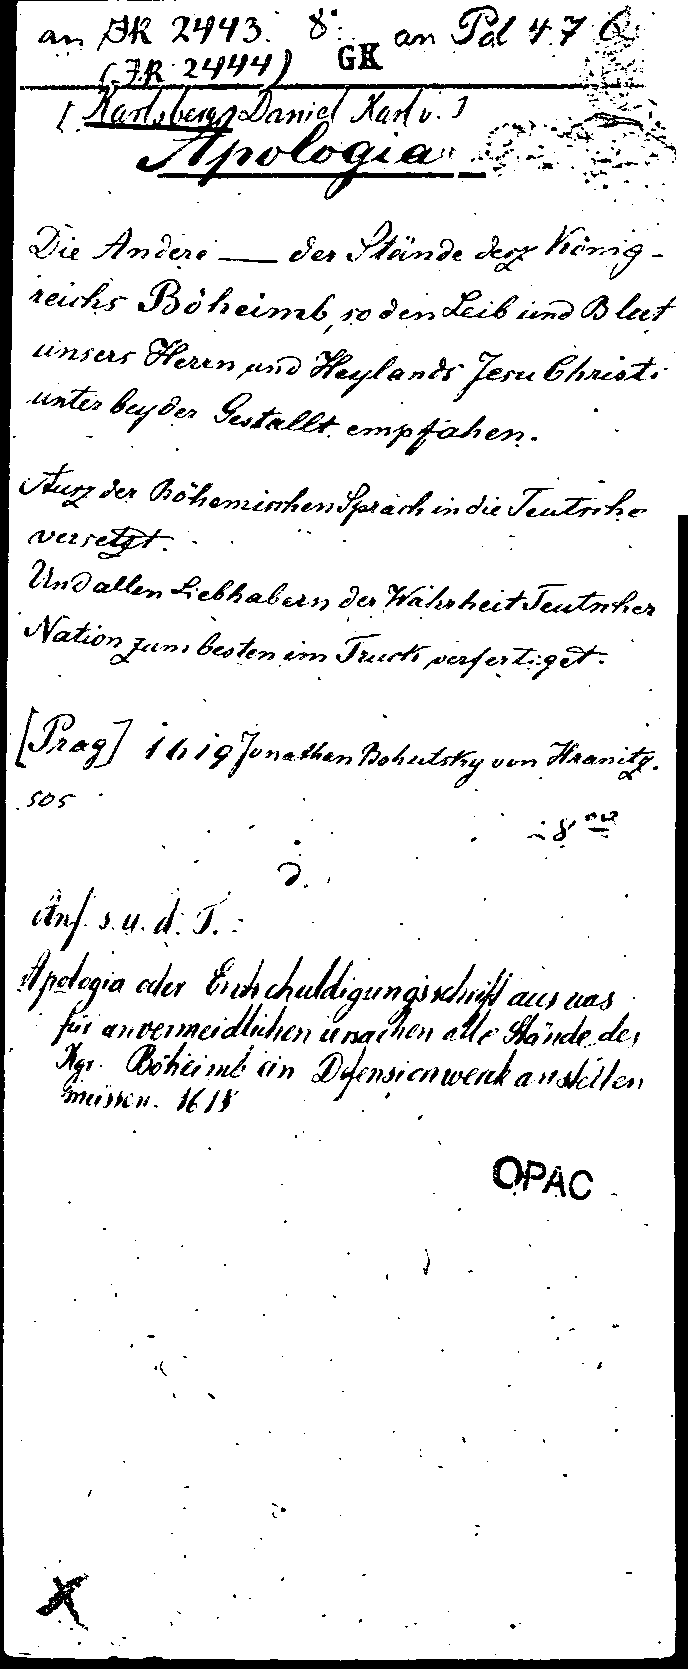 an JR 2443. 8° an Pd 476
(JR 2444) GK
[Karlsberg, Daniel Karl v.]
Apologia
Die Andere — der Stände desz König-
reichs Böheimb, so den Leib und Blut
unsers Herrn und Heylands Jesu Christi
unter beyder Gestallt empfahen.
Ausz der Böhemischen Sprach in die Teutsche
versetzt.
Und allen Liebhabern der Wahrheit Teutscher
Nation zum besten im Truck verfertiget.
[Prag] 1619 Jonathan Bohutsky von Hranitz.
505
8°
Anf. s. u. d. T.:
Apologia oder Entschuldigungsschrift aus was
für anvermeidlichen ursachen alle Stände des
Kgr. Böheimb ein Defensionwerk anstellen
müssen. 1618
OPAC